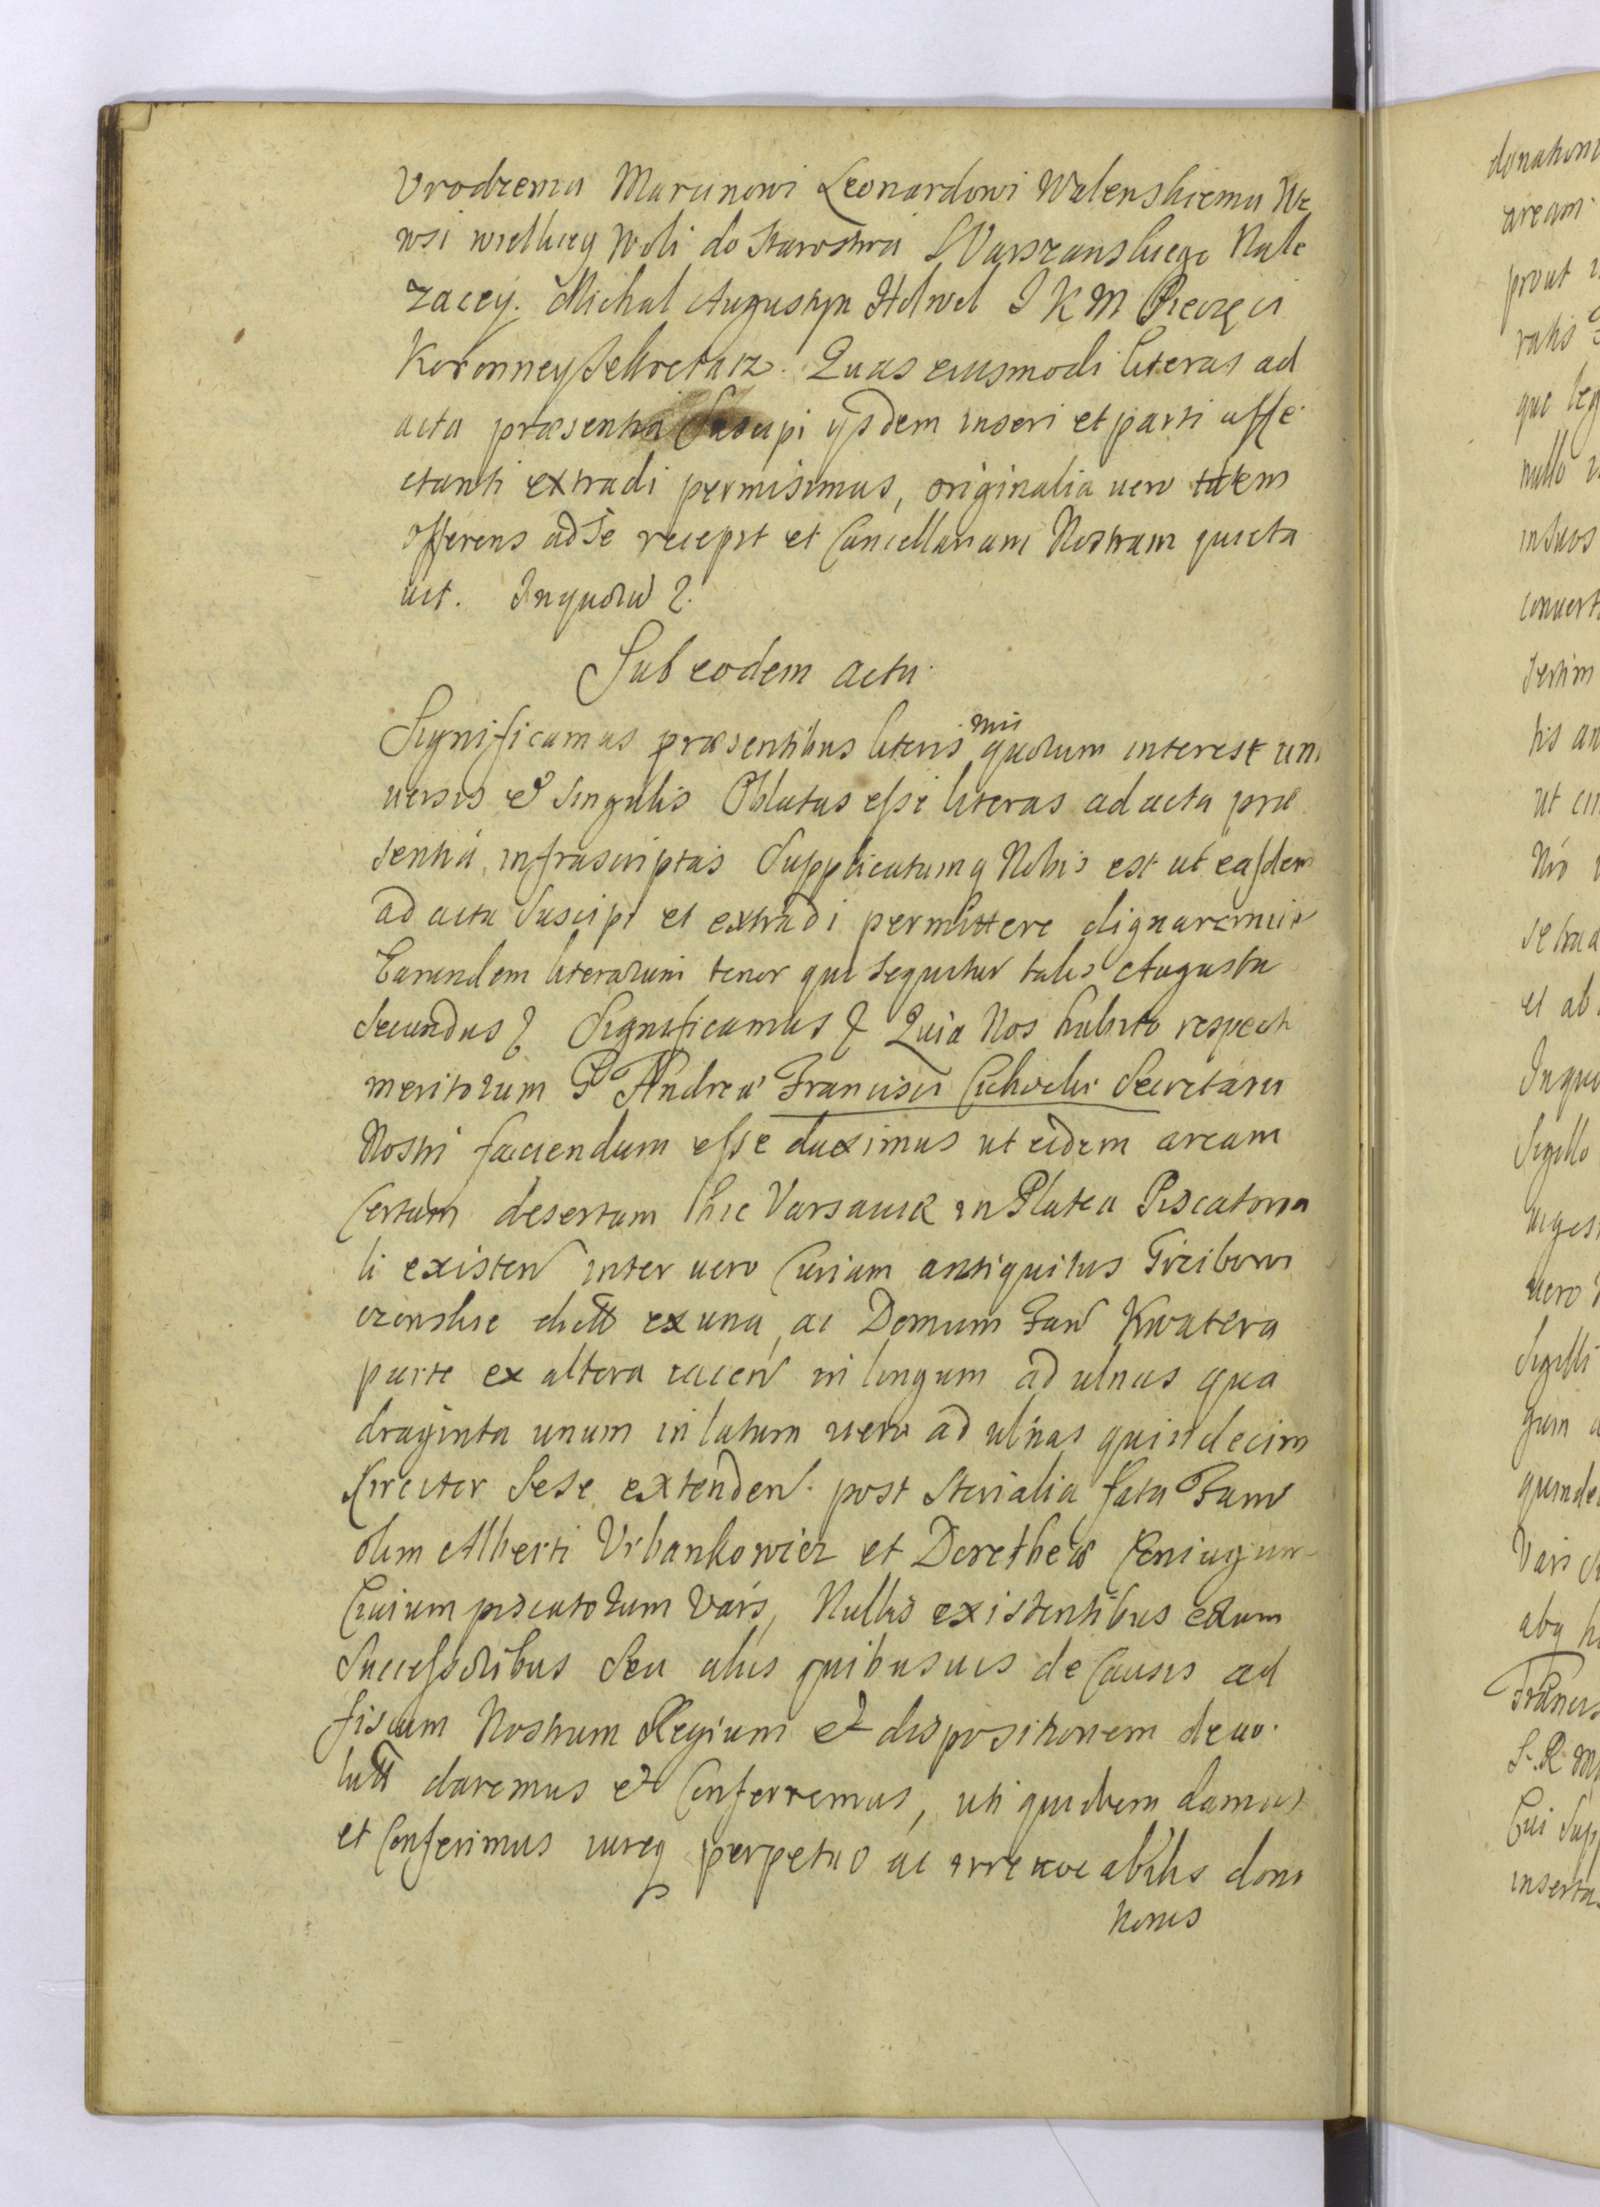 Vrodzemu Marcinowi Leonardowi Walenskiemu We
wsi wielkiey Woli do Starostwa Warszanskiego Nale
zacey. Michal Augustyn Holwel J K M Pieczęci
Koronney Sekretarz. Quas eiusmodi literas ad
acta præsentia Suscipi ijsdem inseri et parti affe
ctanti extradi permisimus, originalia uero idem
offerens ad Se recepit et Cancellariam Nostram quieta
uit. In quorū
Sub eodem actu
Significamus præsentibus literis nris quorum interest uni
uersis et Singulis Oblatas esse literas ad acta præ
sentia infrascriptas Supplicatumq Nobis est ut easdem
ad acta Suscipi et extradi permittere dignaremur
Earundem literarum tenor qui sequitur talis Augustu
Secundus Significamus Quia Nos habito respectu
meritorum G Andreæ Francisci Cichocki Secretarii
Nostri faciendum esse duximus ut eidem aream
Certam desertam hic Varsauiæ in Platea Piscatoria
li existen inter uero Curiam antiquitus
dictt ex una, ac Domum Fam Kwatera
parte ex altera iacen in longum ad ulnas qua
draginta unum in latum uero ad ulnas quindecim
circiter Sese extenden. post Sterialia fata Fam
olim Alberti Vrbankowicz et Dorotheæ Coniugum
Ciuium piscatorum Vars, Nullis existentibus eorum
Successoribus Seu alijs quibusuis de Causis ad
fiscum Nostrum Regium et dispositionem deuo
lutt daremus et Conferremus, uti quidem damus
et Conferimus iureq perpetuo ac irreuocabilis dona
tionis
donationi
aream
prout
ratis
que leg
nullo
in suos
conuert
tis an
ut
se
et ab
Inquo
Sigillo
uero
Sigilli
quinde
Vars
abq
Francis
S. R. M
Cui Sup
inserta